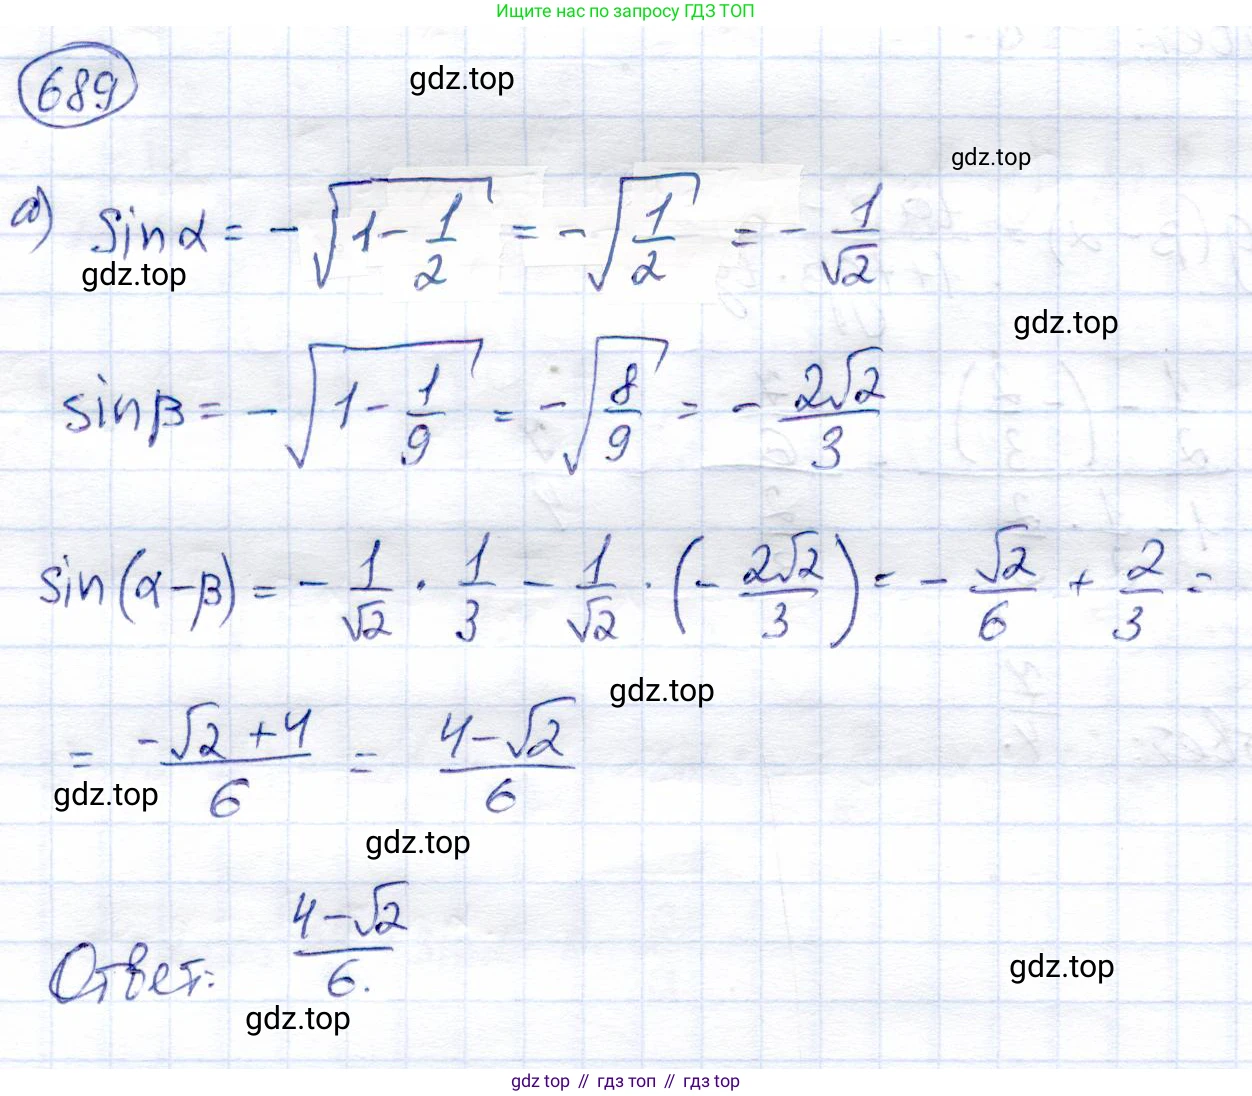 Ищите нас по запросу ГДЗ ТОП
689
gdz.top
gdz.top
а) sin α = -√(1 - 1/2) = -√(1/2) = - 1/√2
gdz.top
gdz.top
sin β = -√(1 - 1/9) = -√(8/9) = - 2√2/3
sin(α-β) = - 1/√2 · 1/3 - 1/√2 · (- 2√2/3) = - √2/6 + 2/3 =
gdz.top
= (-√2 + 4)/6 = (4-√2)/6
gdz.top
gdz.top
Ответ: (4-√2)/6.
gdz.top
gdz.top
gdz top // гдз топ // гдз top